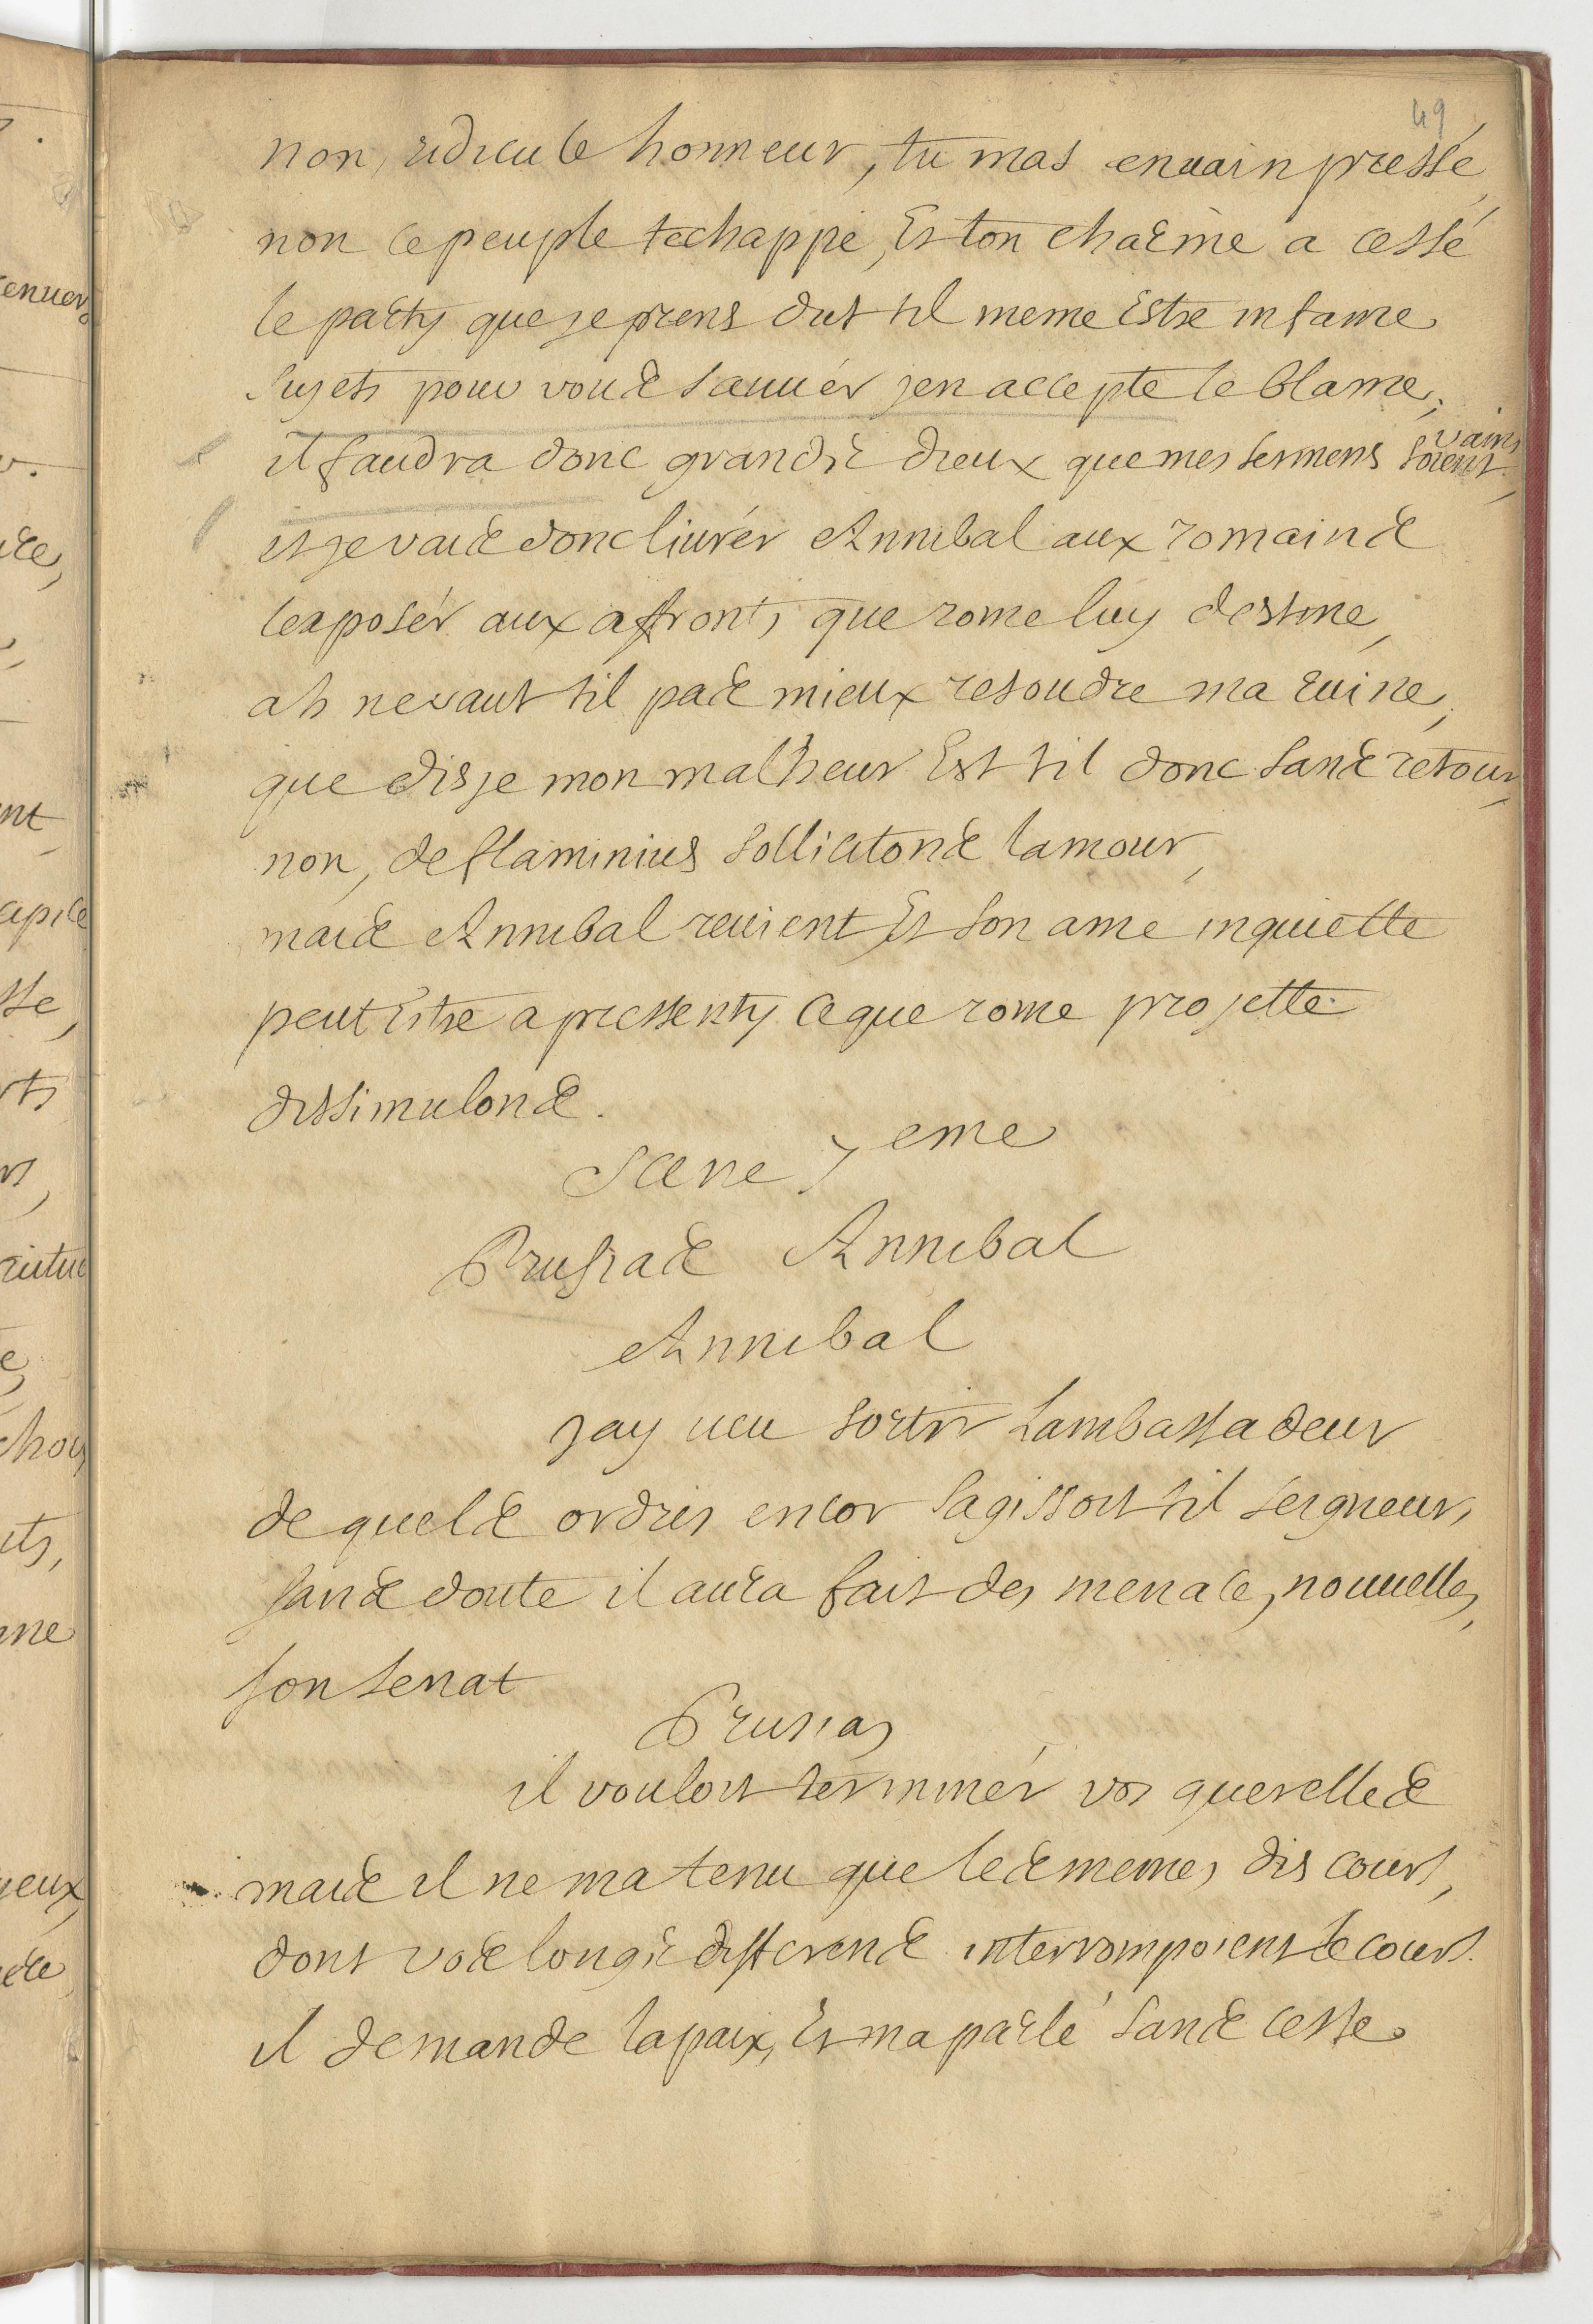 49
non, ridicule honneur, tu mas envain pressé,
non ce peuple techappe, Et ton charme a cessé
le party que je prens dut til meme Estre infame
sujets pour vous sauuér jen accepte le blame,
il faudra donc grands dieux que mes sermens soient vains,
et je vais donc liurér Annibal aux romains
lexposér aux affronts que rome luy destine,
ah ne vaut til pas mieux resoudre ma ruine,
que dis je mon malheur Est til donc sans retour,
non, de flaminius sollicitons lamour,
mais Annibal reuient Et son ame inquiette
peut Estre a pressenty ce que rome projette
dissimulons.
Scene 7eme
Prusias Annibal
Annibal
jay ueu sortir Lambassadeur
de quels ordres encor sagissoit til seigneur,
sans doute il aura fait des menaces nouuelles,
son senat
Prusias
il vouloit terminér vos querelles
mais il ne ma tenu que les memes discours,
dont vos longs differens interrompoient le cours.
il demande la paix, Et ma parlé sans cesse